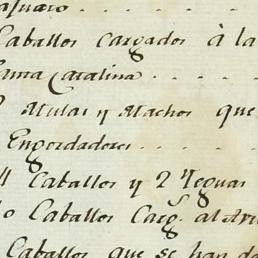 Caballos Cargados à la
Catalina . . . .
Mulas y Machos que
Engordadores . . .
4 Caballos y 2 Yeguas
Caballos Carg.s al
Caballos que se han da